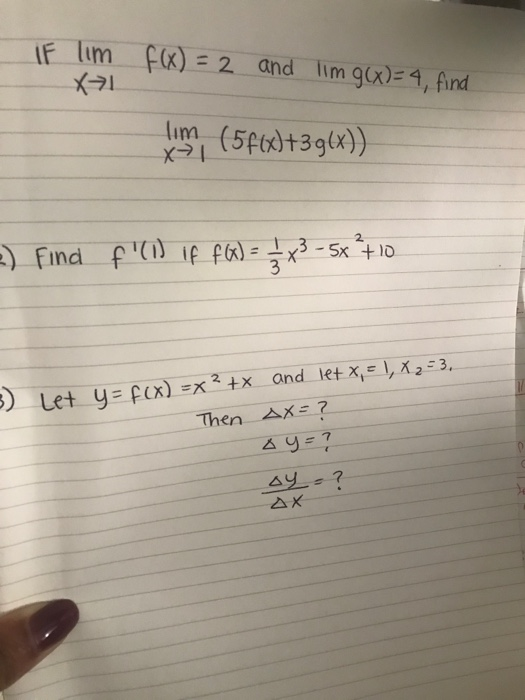 IF lim f(x) = 2 and lim g(x) = 4, find
x→1
lim (5f(x)+3g(x))
x→1
2) Find f'(1) if f(x) = 1/3 x³ - 5x² + 10
3) Let y = f(x) = x² + x and let x₁ = 1, x₂ = 3.
Then Δx = ?
Δy = ?
Δy/Δx = ?